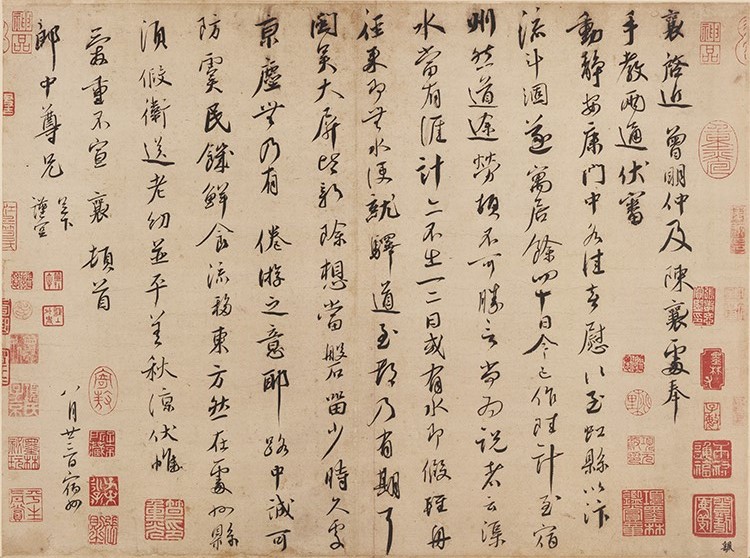 襄啓近曾明仲及陳襄處奉
手教兩通伏審
動靜安康門中各佳喜慰〻至虹縣以汴
流斗涸遂寓居餘四十日今已作陸計至宿
州然道途勞頓不可勝言尚為說者云渠
水當有涯計亦不出一二日或有水即假輕舟
徑來即無水便就驛道至都乃有期耳
聞吳大屏新除想當磐留少時久處
京塵無乃有倦游之意耶路中誠可
防虞民饑鮮食流移東方然在處州縣
須假衛送老幼並平善秋涼伏惟
愛重不宣襄頓首
郎中尊兄足下
謹空
八月廿三日宿州
神品